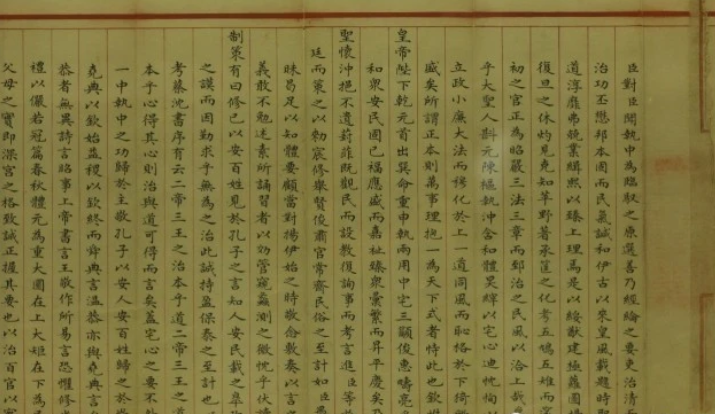 臣對臣聞執中為臨馭之原選善乃經綸之要吏治清
治功丕懋邦本固而民氣誠和伊古以來皇風載題時
道淳龐弗兢業緝熙以臻上理焉是以綏猷建極蘿圖
復旦之休灼見克知莘野普承筐之化考五鳩五雉而
初之官正為昭嚴三法三章而郅治之民風以洽上哉
乎大聖人斟元陳樞執沖含和體昊縡以宅心迪忱恂
立政小廉大法而務化於上一道同風而恥格於下猗
盛矣所謂正本則萬事理抱一為天下式者恃此也欽
皇帝陛下乾元首出巽命重申執兩用中宅三顯俊惠疇亮
和眾安民固已福應咸而嘉祉臻眾彙繁而昇平慶矣乃
聖懷沖挹不遺葑菲既觀民而設教復詢事而考言進臣等
廷而策之以勅宸修舉賢俊肅官常齊民俗之至計如臣
昧曷足以知體要顧當對揚伊始之時敬念敷奏以言
義敢不勉述素所誦習者以効管窺蠡測之微忱乎伏讀
制策有曰修己以安百姓見於孔子之言知人安民載之皋
之謨而因勤求乎無為之治此誠持盈保泰之至計也
考蔡沈書序有云二帝三王之治本乎道二帝三王之道
本乎心得其心則治與道可得而言矣蓋宅心之要不外
一中執中之功歸於主敬孔子以安人安百姓歸之於
堯典以欽始益稷以欽終而舜典言溫恭亦與堯典言
恭者無異詩言昭事上帝書言王敬作所易言恐懼修
禮以儼若冠篇春秋體元為重大圜在上大矩在下為
父母之實即深宮之格致誠正握其要也以治百官以